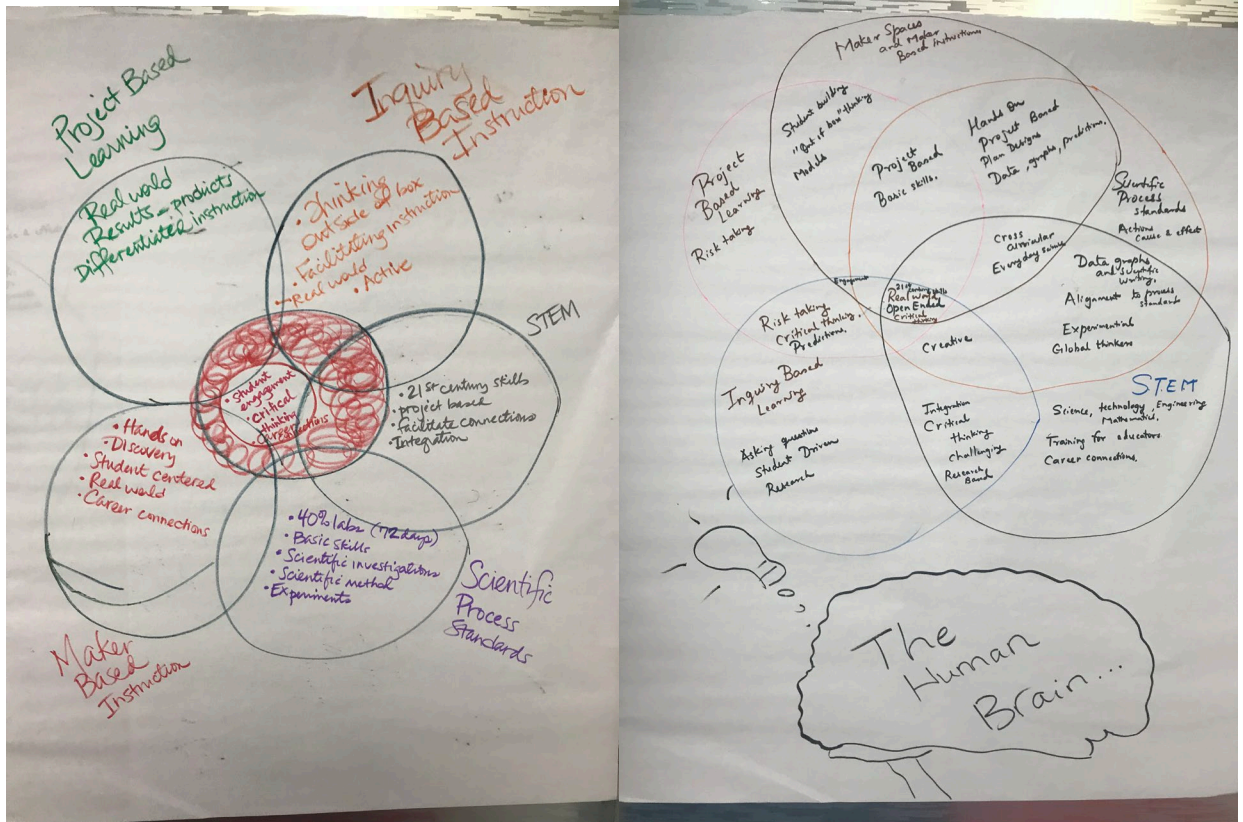 Project Based
Learning
Real world
Results - products
Differentiated instruction
Inquiry
Based
Instruction
• Thinking
outside of box
• Facilitating instruction
• Real world
• Active
STEM
• 21st century skills
• project based
• facilitate connections
• Integration
• Student
engagement
• Critical
thinking
• Career
• Hands on
• Discovery
• Student centered
• Real world
• Career connections
Maker
Based
Instruction
• 40% labs (72 days)
• Basic skills
• Scientific investigations
• Scientific method
• Experiments
Scientific
Process
Standards
Maker Spaces
and Maker
Based instructions
Student building
"out of box" thinking
Models
Project
Based
Learning
Risk taking
Project
Based
Basic skills.
Hands On
Project Based
Plan Designs
Data, graphs, predictions.
Scientific
Process
standards
Actions
Cause & effect
Cross
curricular
Everyday science
Data graphs
and scientific
writing.
Alignment to process
standards
Experimential
Global thinkers
Engagement
21st century skills
Real world
Open Ended
Critical
thinking
Risk taking
Critical thinking.
Predictions.
Creative
Inquiry Based
Learning
Asking questions
Student Driven
Research
Integration
Critical
thinking
challenging
Research
Based
STEM
Science, technology, Engineering
Mathematics.
Training for educators
Career connections.
The
Human
Brain...